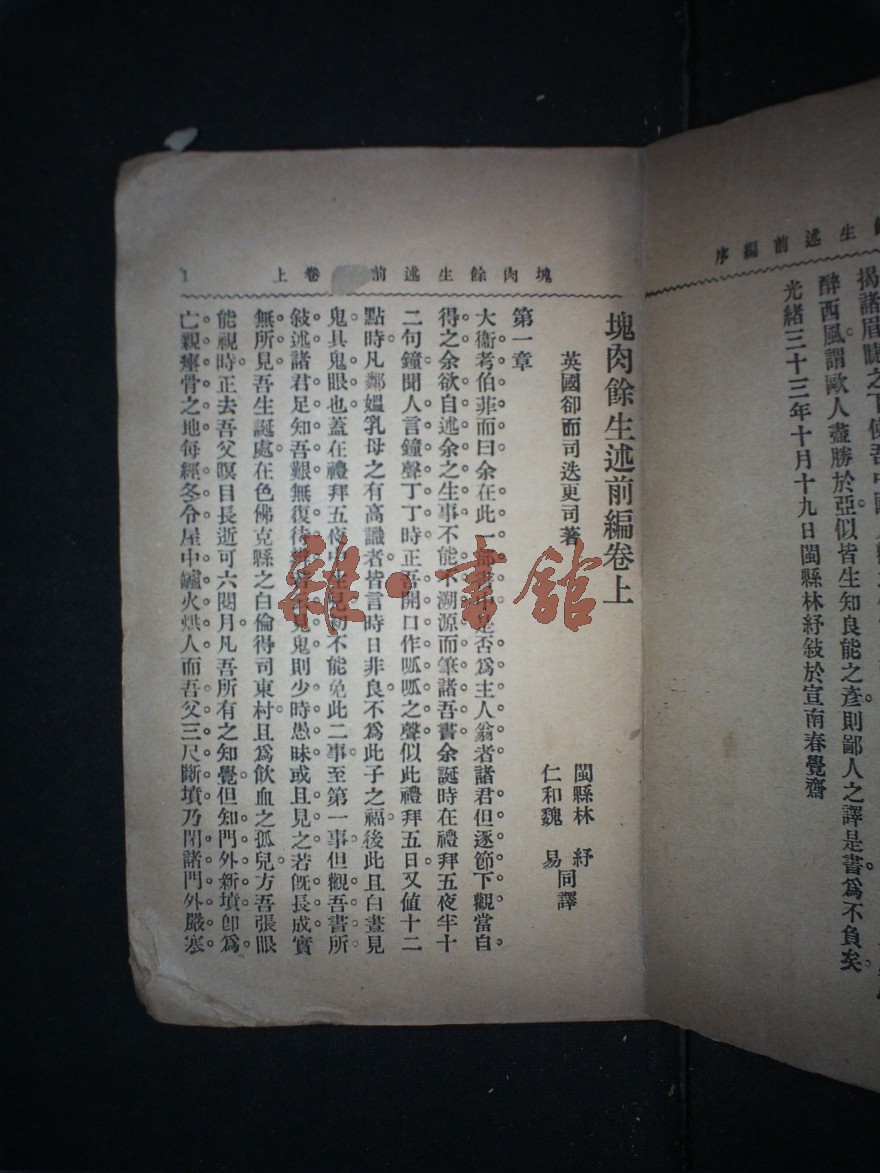 生述前編序
醉西風謂歐人盡勝於亞似皆生知良能之彥則鄙人之譯是書爲不負矣
光緒三十三年十月十九日閩縣林紓敍於宣南春覺齋
塊肉餘生述前 卷上 1
塊肉餘生述前編卷上
英國卻而司迭更司著
閩縣林 紓
仁和魏 易 同譯
第一章
大衞考伯菲而曰余在此一部書中是否爲主人翁者諸君但逐節下觀當自
得之余欲自述余之生事不能不溯源而筆諸吾書余誕時在禮拜五夜半十
二句鐘聞人言鐘聲丁丁時正吾開口作呱呱之聲似此禮拜五日又値十二
點時凡鄰媼乳母之有高識者皆言時日非良不爲此子之福後此且白晝見
鬼具鬼眼也蓋在禮拜五夜中生兒初不能免此二事至第一事但觀吾書所
敍述諸君足知吾艱無復待 見鬼則少時愚昧或且見之若旣長成實
無所見吾生誕處在色佛克縣之白倫得司東村且爲飮血之孤兒方吾張眼
能視時正去吾父暝目長逝可六閱月凡吾所有之知覺但知門外新墳卽爲
亡親瘞骨之地每經冬令屋中鑪火烘人而吾父三尺斷墳乃閉諸門外嚴寒
雜·書館